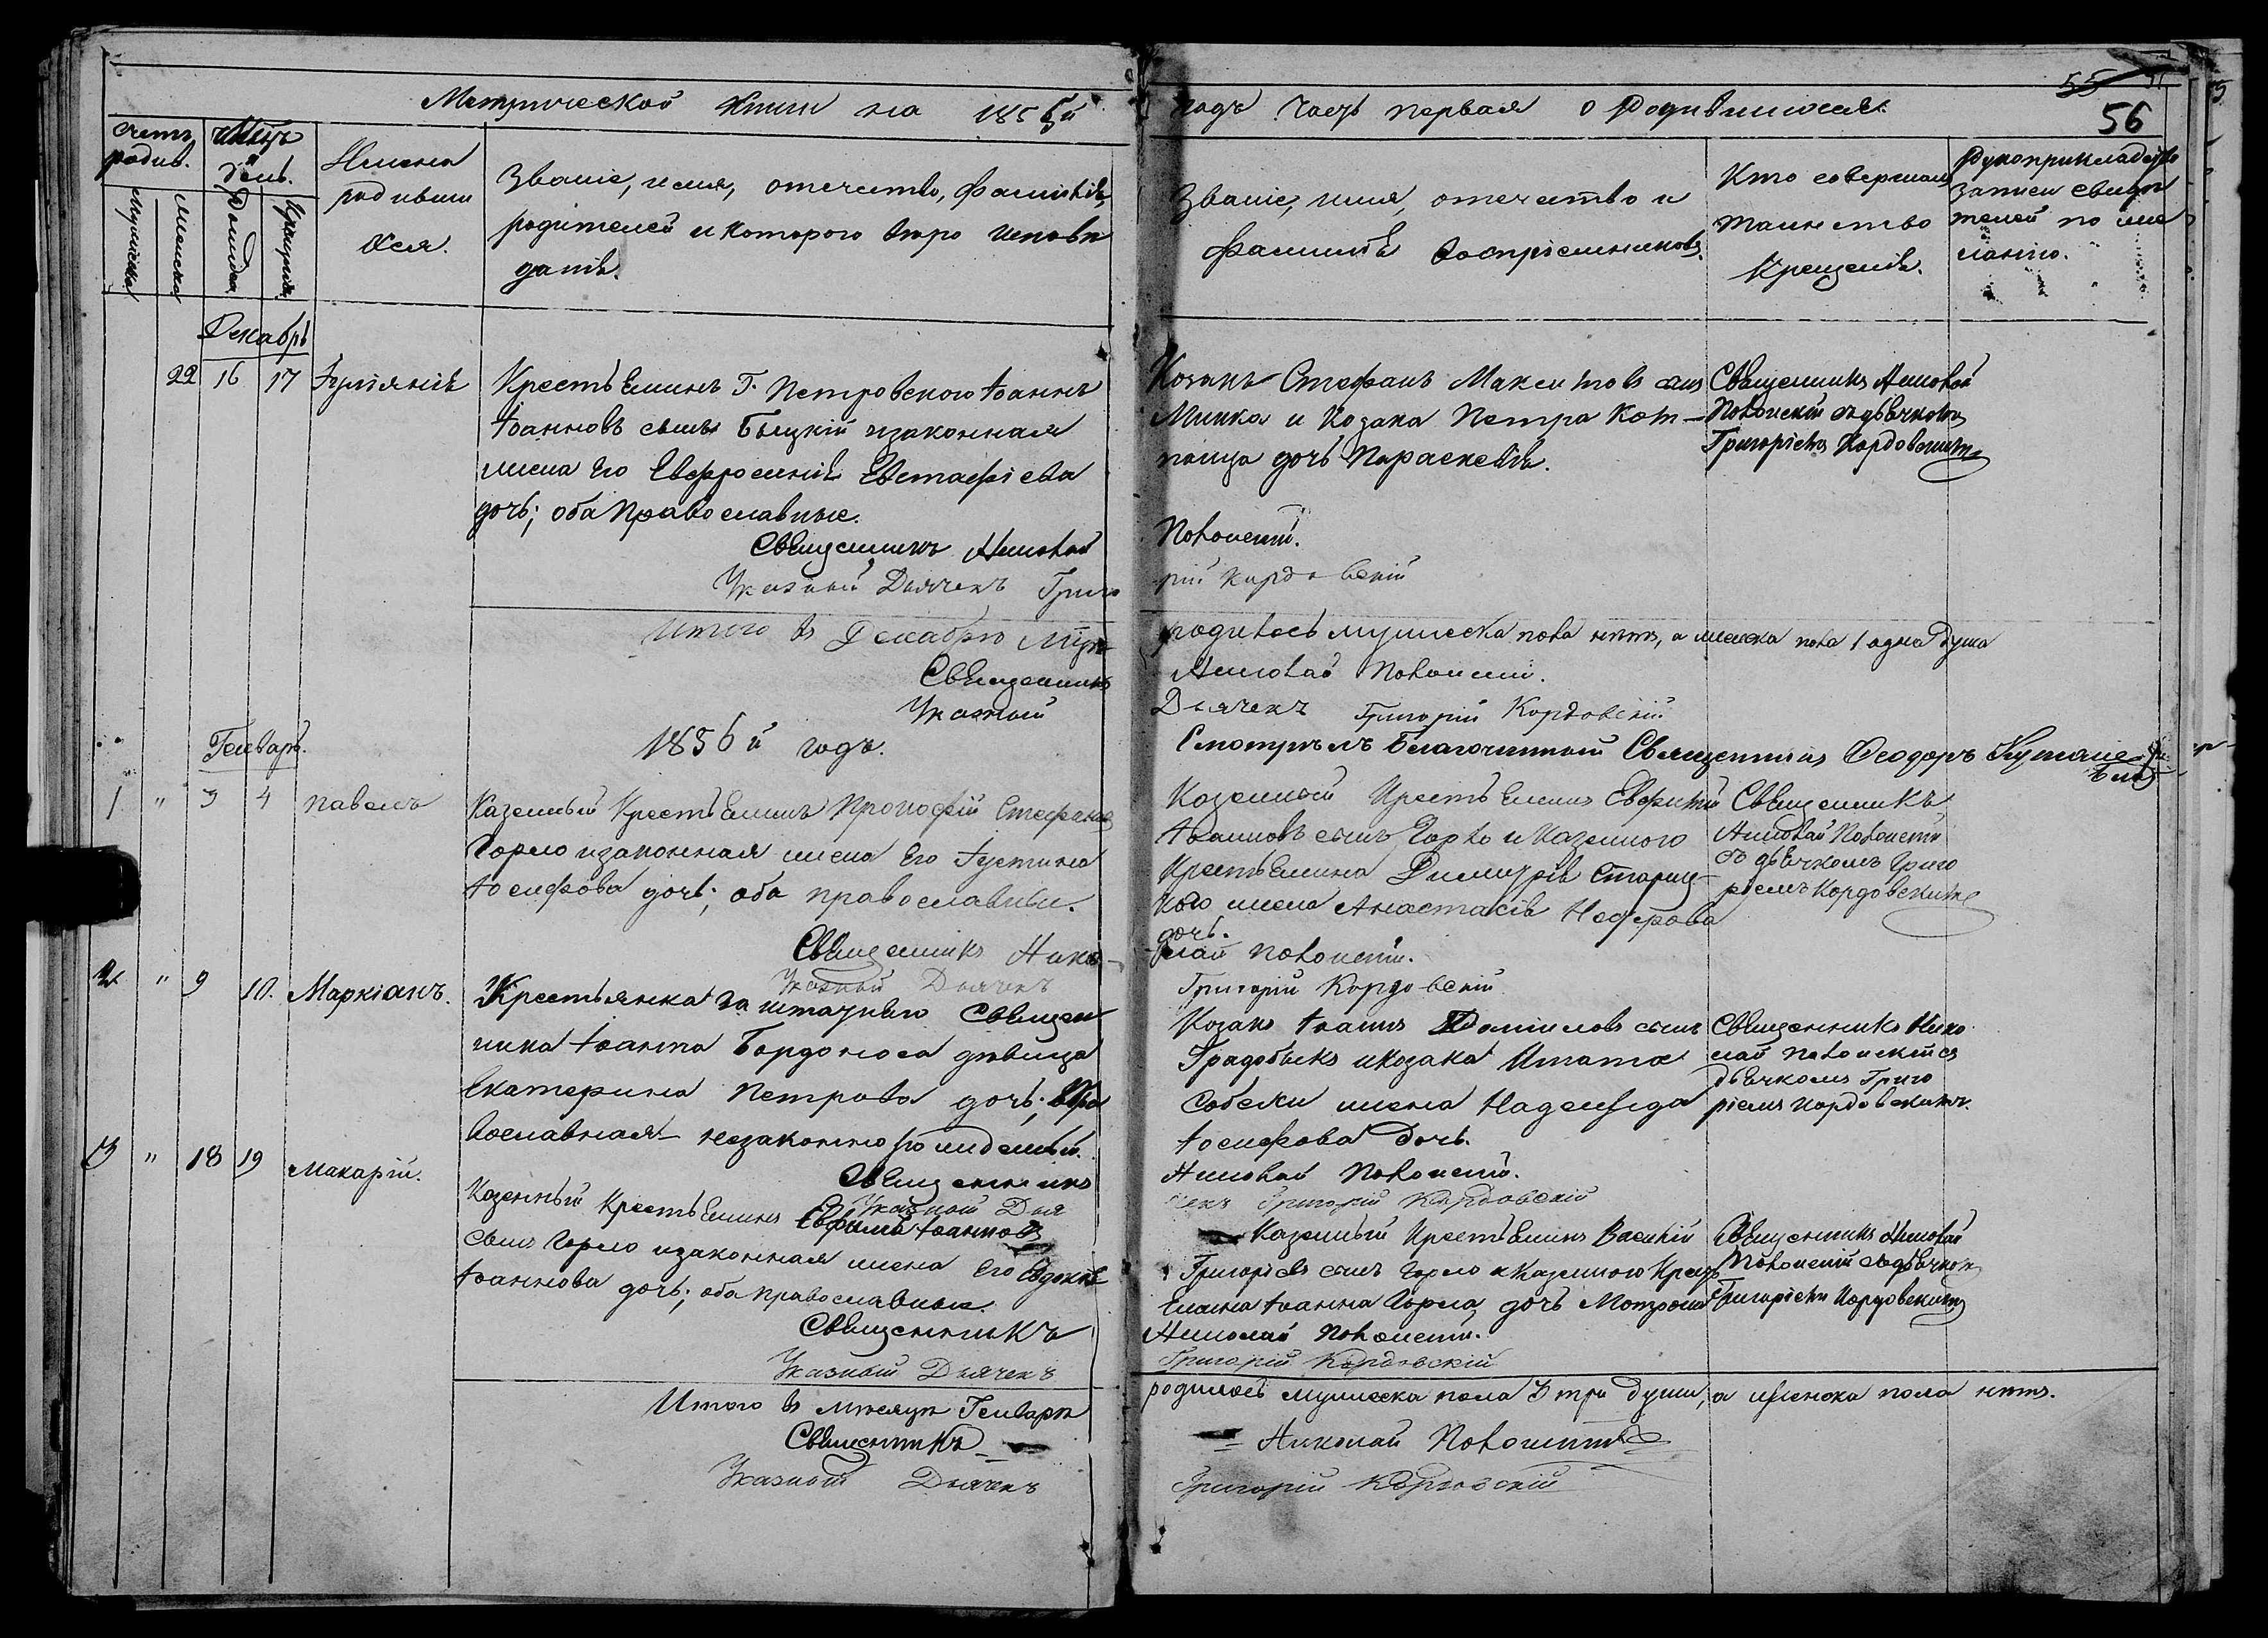 Метрической книги на 1856й
годъ Часть первая о Родившихся.
55
56
счетъ родив.
Мѣсяцъ и день.
Мужеска
Женска
Рожденія
Крещенія
Имена
родивши
хся.
Званіе, имя, отечество, фамилія,
родителей и которого вѣро исповѣ
данія.
Званіе, имя, отечество и
фамилія воспріемниковъ.
Кто совершалъ
таинство
крещенія.
Рукоприкладство
записи свидѣ
телей по же
ланію.
Декабрь
22 16 17 Іуліанія
Крестьянинъ Г. Петровского Іоаннъ
Іоанновъ сынъ Быцкій изаконная
жена его Евфросинія Евстафіева
дочь; оба Православные.
Священникъ Николай
Указный Дьячекъ Григо
Козакъ Стефанъ Максимовъ сынъ
Минка и Козака Петра Кот-
дочь Параскевія.
рій Кордовскій
Священникъ Николай
съ дьячкомъ
Григоріемъ Кордовскимъ
Итого въ Декабрѣ
родилось мужеска пола нѣтъ, а женска пола 1 одна душа
Священникъ
Николай
Указный
Дьячекъ Григорій Кордовскій
Генварь.
1856й годъ.
Смотрѣлъ Благочинный Священникъ Феодоръ
1 " 3 4 Павелъ
Казенный Крестьянинъ Прокофій Стефановъ
Горло изаконная жена его Іустина
Іосифова дочь; оба православны.
Священникъ Нико-
Указный Дьячекъ
Козенный Крестьянинъ Евфимій
Іоанновъ сынъ Горло и Казенного
Крестьянина Димитрія Стариц-
кого жена Анастасія
дочь.
лай
Григорій Кордовскій
Священникъ
Николай
съ дьячкомъ Григо
ріемъ Кордовскимъ
2 " 9 10. Маркіанъ.
Крестьянка заштатнаго Священ
ника Іоанна Бордоноса дѣвица
Екатерина Петрова дочь; Пра
вославная незаконно рожденый.
Священникъ
Указной Дья
Козакъ Іоаннъ Даниловъ сынъ
Градобыкъ икозака Игната
Собеки жена Надежда
Іосифова Дочь.
Николай
чекъ Григорій Кордовскій
Священникъ Нико
лай съ
дьячкомъ Григо
ріемъ Кордовскимъ.
3 " 18 19 Макарій.
Козенный Крестьянинъ Евфимъ Іоанновъ
сынъ Горло изаконная жена его Евдокія
Іоаннова дочь; оба православные.
Священникъ
Указный Дьячекъ
Казенный Крестьянинъ Василій
Григоріевъ сынъ Горло и Казенного Крест
ьянина Іоанна Горла, дочь Мотрона
Николай
Григорій Кордовскій
Священникъ Николай
съ дьячкомъ
Григоріемъ Кордовскимъ
Итого въ мѣсяцѣ Генварѣ
родилось мужеска пола 3 три души, а женска пола нѣтъ.
Священникъ
Николай
Указной Дьячекъ
Григорій Кордовскій